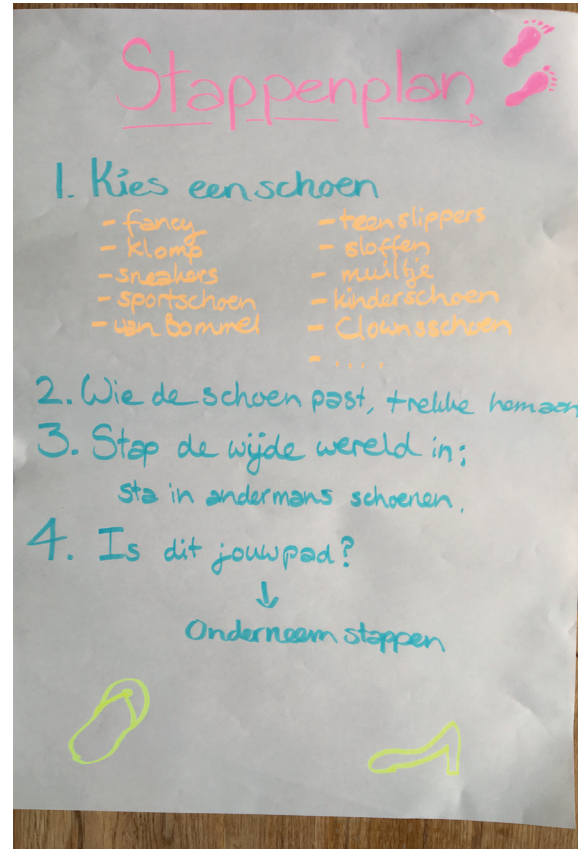 Stappenplan
1. Kies een schoen
- fancy
- klomp
- sneakers
- sportschoen
- van Bommel
- teenslippers
- sloffen
- muiltje
- kinderschoen
- Clownsschoen
- ....
2. Wie de schoen past, trekke hem aan
3. Stap de wijde wereld in;
sta in andermans schoenen.
4. Is dit jouw pad?
↓
Onderneem stappen